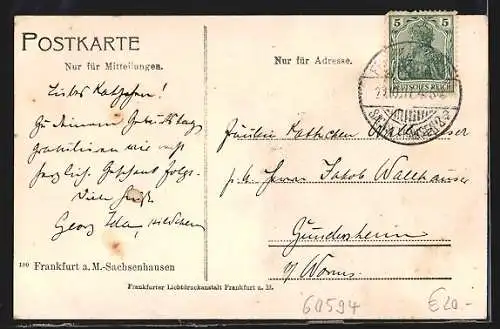 POSTKARTE
Nur für Mitteilungen.
Liebes Kätchen!
Zu Deinem Geburtstag
gratulieren wir recht
herzlich. Geschenk folgt.
Viele Grüße
Georg Ida,
100 Frankfurt a. M.-Sachsenhausen
Nur für Adresse.
5 5
DEUTSCHES REICH
Fräulein Kättchen Wallhäuser
Herrn Jakob Wallhäuser
Gundersheim
b/ Worms.
Frankfurter Lichtdruckanstalt Frankfurt a. M.
60594
€20-